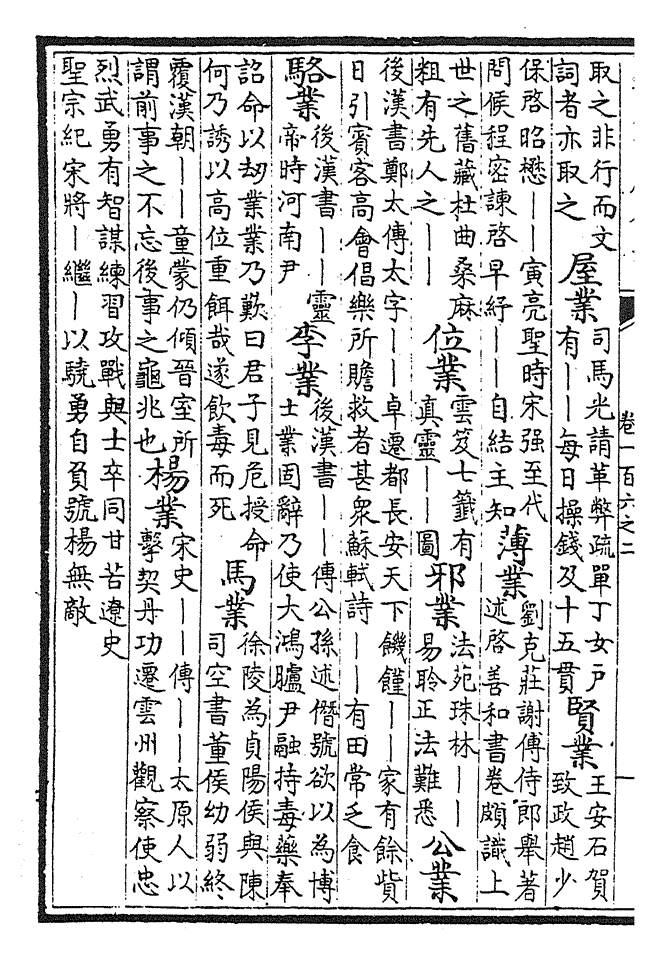 取之非行而文
詞者亦取之
屋業
司馬光請革弊疏單丁女戶
有丨丨每日掾錢及十五貫
賢業
王安石賀
致政趙少
保啓昭懋丨丨寅亮聖時宋强至代
問候程密諫啓早紓丨丨自結主知
薄業
劉克莊謝傅侍郎舉著
述啓善和書卷頗識上
世之舊藏杜曲桑麻
粗有先人之丨丨
位業
雲笈七籤有
真靈丨丨圖
邪業
法苑珠林丨丨
易聆正法難悉
公業
後漢書鄭太傳太字丨丨卓遷都長安天下饑饉丨丨家有餘貲
日引賓客高會倡樂所贍救者甚衆蘇軾詩丨丨有田常乏食
駱業
後漢書丨丨靈
帝時河南尹
李業
後漢書丨丨傳公孫述僭號欲以為博
士業固辭乃使大鴻臚尹融持毒藥奉
詔命以刼業業乃歎曰君子見危授命
何乃誘以高位重餌哉遂飲毒而死
馬業
徐陵為貞陽侯與陳
司空書董侯幼弱終
覆漢朝丨丨童蒙仍傾晉室所
謂前事之不忘後事之龜兆也
楊業
宋史丨丨傳丨丨太原人以
擊契丹功遷雲州觀察使忠
烈武勇有智謀練習攻戰與士卒同甘苦遼史
聖宗紀宋將丨繼丨以驍勇自負號楊無敵
卷一百六之二